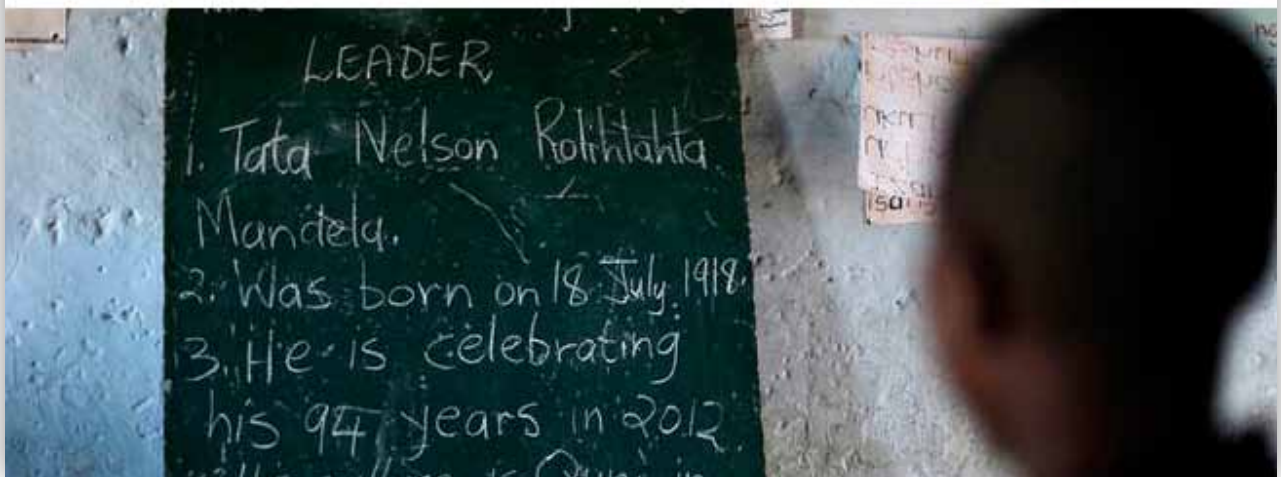 LEADER
1. Tata Nelson Rolihlahla
Mandela.
2. Was born on 18 July. 1918.
3. He is celebrating
his 94 years in 2012.
in